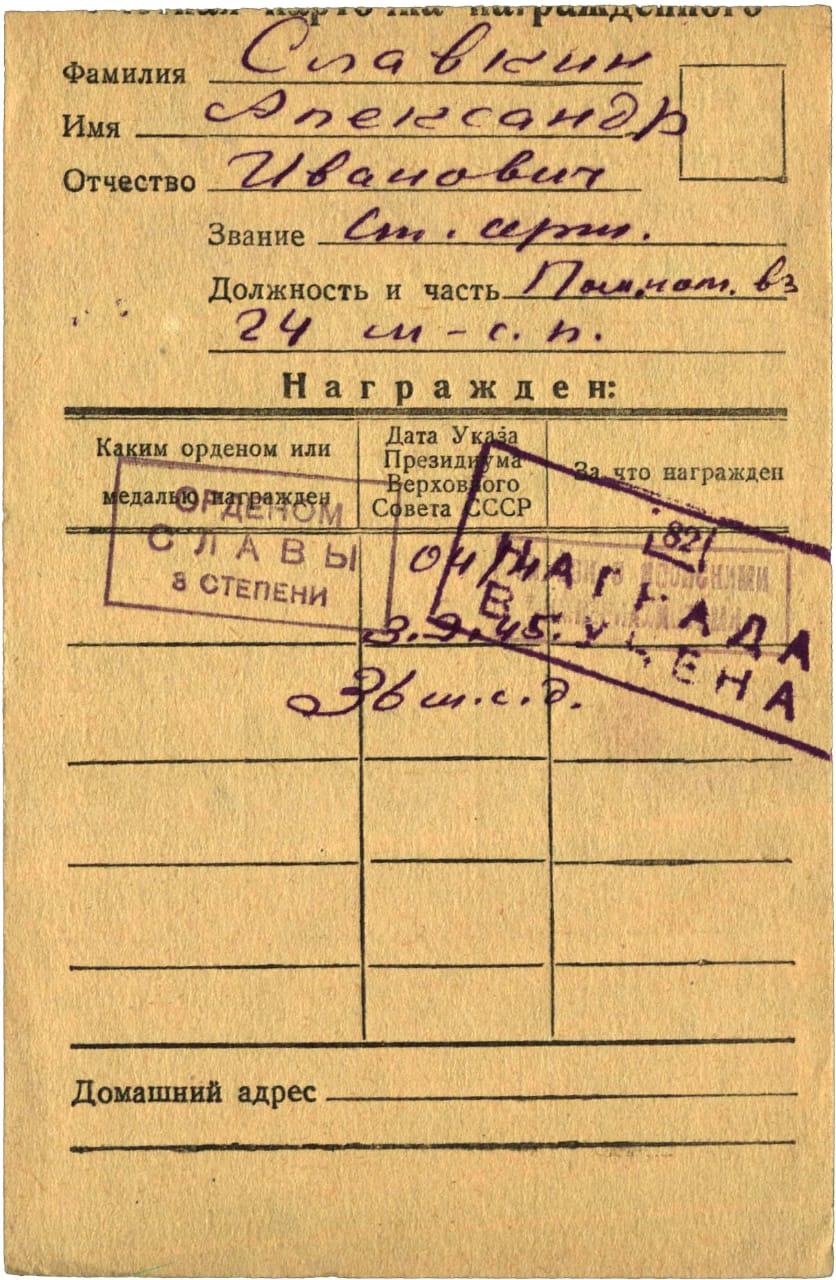 карточка награжденного
Фамилия Славкин
Имя Александр
Отчество Иванович
Звание Ст. серж.
Должность и часть Пом. ком. вз
24 м-с. п.
Награжден:
Каким орденом или медалью награжден
Дата Указа Президиума Верховного Совета СССР
За что награжден
ОРДЕНОМ
СЛАВЫ
3 СТЕПЕНИ
04/
82
НАГРАДА
ВРУЧЕНА
3.9.45.
36 м.с.д.
Домашний адрес